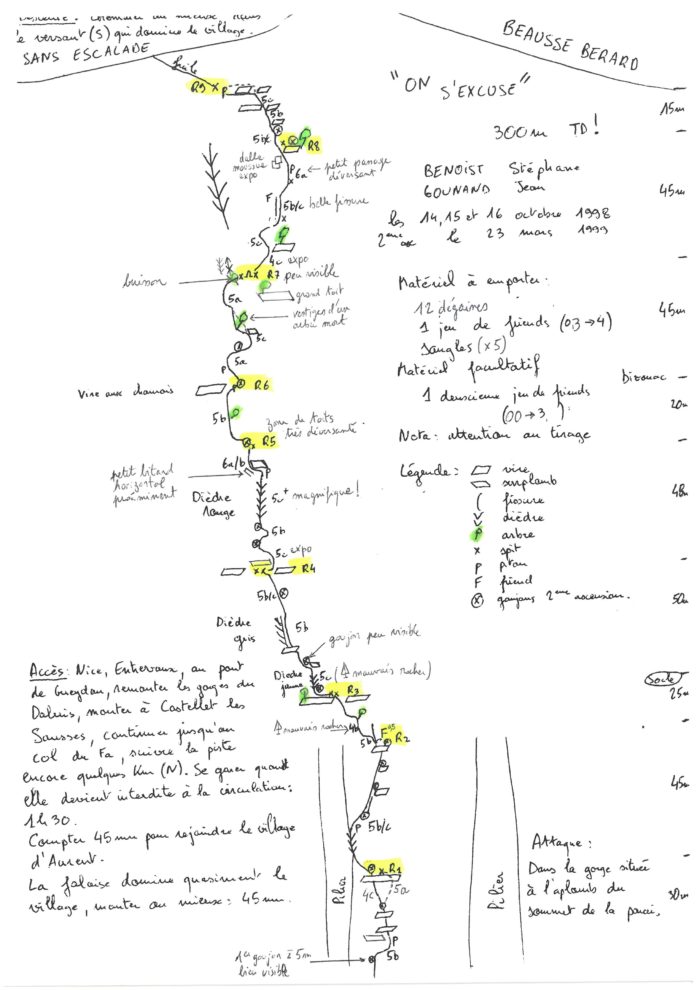 Descente : remonter au mieux
le versant (S) qui domine le village.
SANS ESCALADE
BEAUSSE BERARD
"ON S'EXCUSE"
300m TD!
BENOIST Stéphane
GOUNAND Jean
les 14, 15 et 16 octobre 1998
2ème asc le 23 mars 1999
Matériel à emporter :
12 dégaines
1 jeu de friends (0,3→4)
Sangles (x5)
Matériel facultatif
1 deuxième jeu de friends
(00→3, ) :
Nota : attention au tirage
Légende :
vire
surplomb
fissure
dièdre
arbre
x spit
P piton
F friend
goujons 2ème ascension.
15m
45m
45m
Bivouac
20m
48m
50m
Socle
25m
45m
30m
facile
R9 x P
5c
5b
5b
R8
dalle
moussue
expo
P
6a ← petit passage
déversant
F
5b/c belle fissure
x
5c
4c expo
buisson
R7 peu visible
5a
grand toit
vestiges d'un
arbre mort
5c
5a
P
Vire aux chamois
P
R6
5b
zone de toits
très déversante
R5
6a/b
P
petit bitard
horizontal
proéminent
Dièdre
rouge
5c+ magnifique!
5b
5c expo
xx R4
5b/c
Dièdre
gris
5b
goujon peu visible
Dièdre
jaune
5c (mauvais rocher)
R3
mauvais rocher
4b
5b
F
R2
5b/c
P
x R1
4c
5a
P
5b
Pilier
Pilier
1er goujon à 5m
bien visible
Accès : Nice, Entrevaux, au pont
de Gueydan, remonter les gorges du
Daluis, monter à Castellet les
Sausses, continuer jusqu'au
col du Fa, suivre la piste
encore quelques Km (N). Se garer quand
elle devient interdite à la circulation :
1h30.
Compter 45mn pour rejoindre le village
d'Aurent.
La falaise domine quasiment le
village, monter au mieux : 45mn.
Attaque :
Dans la gorge située
à l'aplomb du
sommet de la paroi.